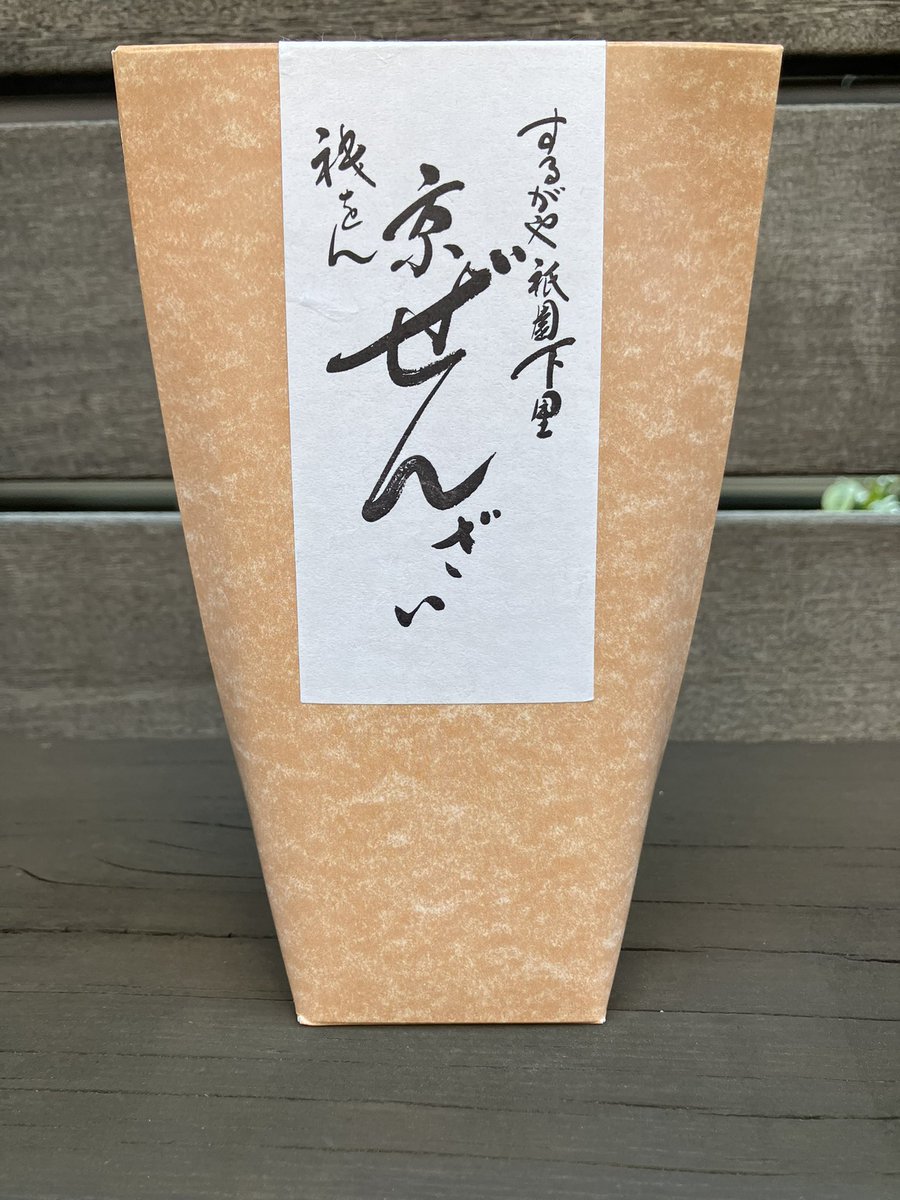 するがや祇園下里
京ぜんざい
祇をん